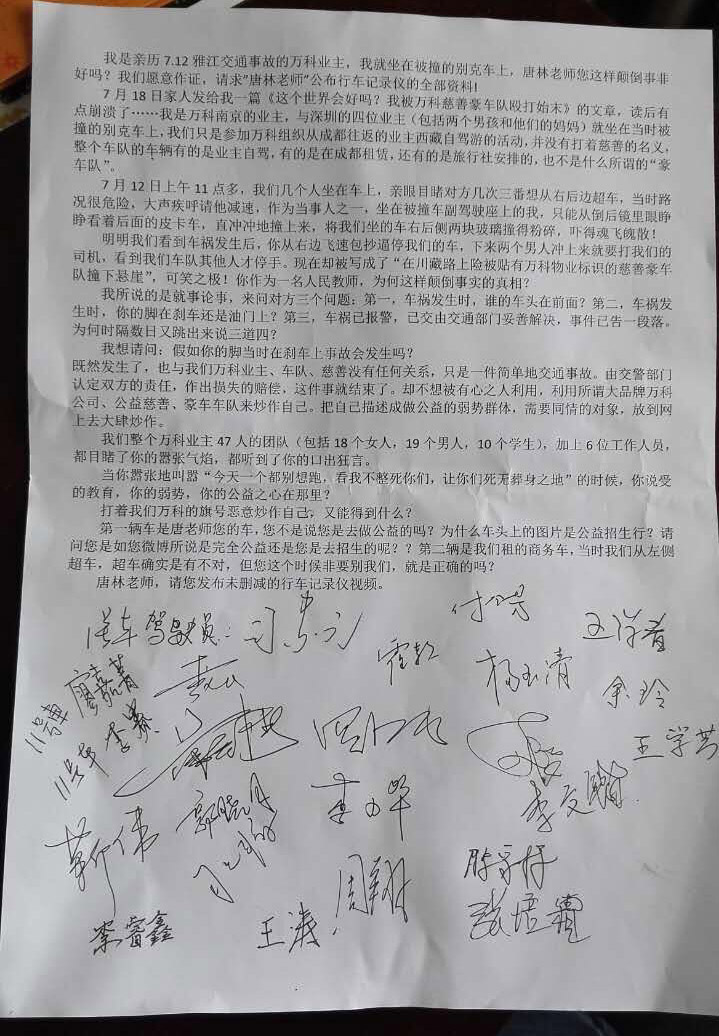 我是亲历 7.12 雅江交通事故的万科业主，我就坐在被撞的别克车上，唐林老师您这样颠倒事非
好吗？我们愿意作证，请求”唐林老师”公布行车记录仪的全部资料!
7 月 18 日家人发给我一篇《这个世界会好吗？我被万科慈善豪车队殴打始末》的文章，读后有
点崩溃了……我是万科南京的业主，与深圳的四位业主（包括两个男孩和他们的妈妈）就坐在当时被
撞的别克车上，我们只是参加万科组织从成都往返的业主西藏自驾游的活动，并没有打着慈善的名义，
整个车队的车辆有的是业主自驾，有的是在成都租赁，还有的是旅行社安排的，也不是什么所谓的“豪
车队”。
7 月 12 日上午 11 点多，我们几个人坐在车上，亲眼目睹对方几次三番想从右后边超车，当时路
况很危险，大声疾呼请他减速，作为当事人之一，坐在被撞车副驾驶座上的我，只能从倒后镜里眼睁
睁看着后面的皮卡车，直冲冲地撞上来，将我们坐的车右后侧两块玻璃撞得粉碎，吓得魂飞魄散！
明明我们看到车祸发生后，你从右边飞速包抄逼停我们的车，下来两个男人冲上来就要打我们的
司机，看到我们车队其他人才停手。现在却被写成了“在川藏路上险被贴有万科物业标识的慈善豪车
队撞下悬崖”，可笑之极！你作为一名人民教师，为何这样颠倒事实的真相？
我所说的是就事论事，来问对方三个问题：第一，车祸发生时，谁的车头在前面？第二，车祸发
生时，你的脚在刹车还是油门上？第三，车祸已报警，已交由交通部门妥善解决，事件已告一段落。
为何时隔数日又跳出来说三道四？
我想请问：假如你的脚当时在刹车上事故会发生吗？
既然发生了，也与我们万科业主、车队、慈善没有任何关系，只是一件简单地交通事故。由交警部门
认定双方的责任，作出损失的赔偿，这件事就结束了。却不想被有心之人利用，利用所谓大品牌万科
公司、公益慈善、豪车车队来炒作自己。把自己描述成做公益的弱势群体，需要同情的对象，放到网
上去大肆炒作。
我们整个万科业主 47 人的团队（包括 18 个女人，19 个男人，10 个学生），加上 6 位工作人员，
都目睹了你的嚣张气焰，都听到了你的口出狂言。
当你嚣张地叫嚣“今天一个都别想跑，看我不整死你们，让你们死无葬身之地”的时候，你说受
的教育，你的弱势，你的公益之心在那里？
打着我们万科的旗号恶意炒作自己，又能得到什么？
第一辆车是唐老师您的车，您不是说您是去做公益的吗？为什么车头上的图片是公益招生行？请
问您是如您微博所说是完全公益还是您是去招生的呢？？第二辆是我们租的商务车，当时我们从左侧
超车，超车确实是有不对，但您这个时候非要别我们，就是正确的吗？
唐林老师，请您发布未删减的行车记录仪视频。
驾驶员：
杨玉清
余玲
廖嘉菁
11号车
王学芸
靳伟
郭晓月
周翔
李睿鑫
王涛